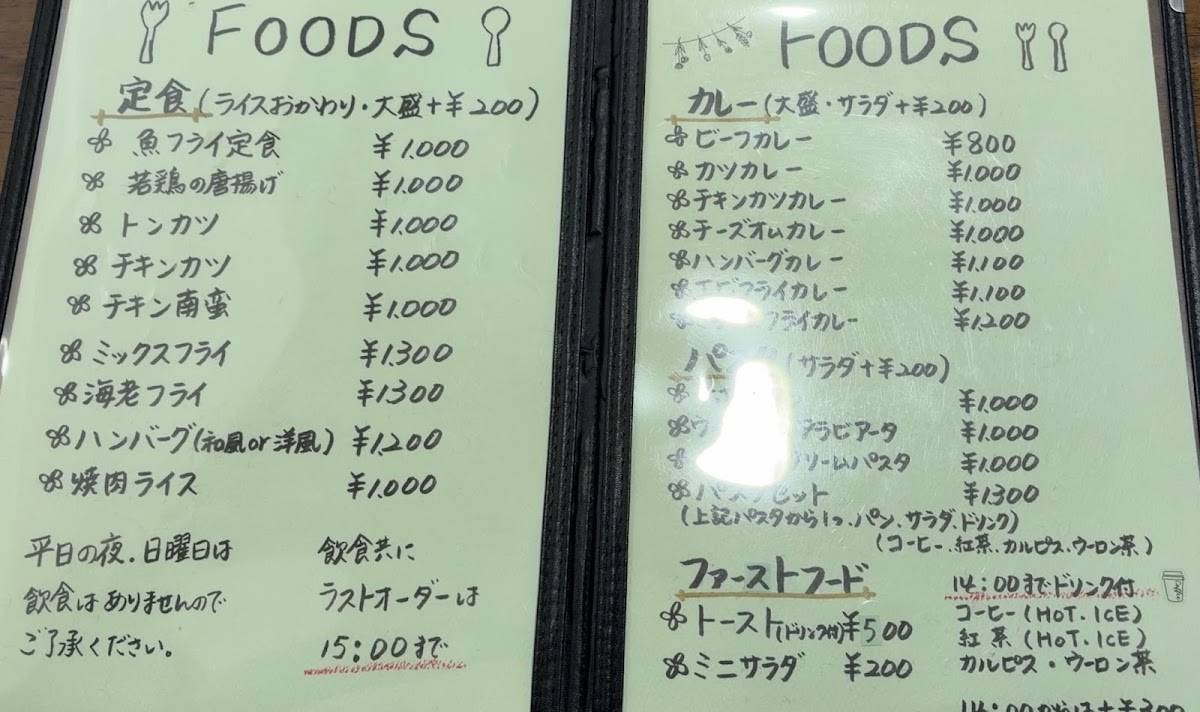 FOODS
定食(ライスおかわり・大盛+¥200)
魚フライ定食 ¥1.000
若鶏の唐揚げ ¥1.000
トンカツ ¥1.000
チキンカツ ¥1.000
チキン南蛮 ¥1.000
ミックスフライ ¥1.300
海老フライ ¥1300
ハンバーグ(和風or洋風) ¥1.200
焼肉ライス ¥1.000
平日の夜、日曜日は
飲食はありませんので
ご了承ください。
飲食共に
ラストオーダーは
15:00まで
FOODS
カレー(大盛・サラダ+¥200)
ビーフカレー ¥800
カツカレー ¥1.000
チキンカツカレー ¥1.000
チーズオムカレー ¥1.000
ハンバーグカレー ¥1.100
エビフライカレー ¥1.100
フライカレー ¥1.200
(サラダ+¥200)
¥1.000
ラビアータ ¥1.000
リームパスタ ¥1.000
セット ¥1300
(上記パスタから1つ、パン、サラダ、ドリンク)
(コーヒー、紅茶、カルピス、ウーロン茶)
ファーストフード
トースト(ドリンク付)¥500
ミニサラダ ¥200
14:00までドリンク付
コーヒー(HOT.ICE)
紅茶(HOT.ICE)
カルピス・ウーロン茶